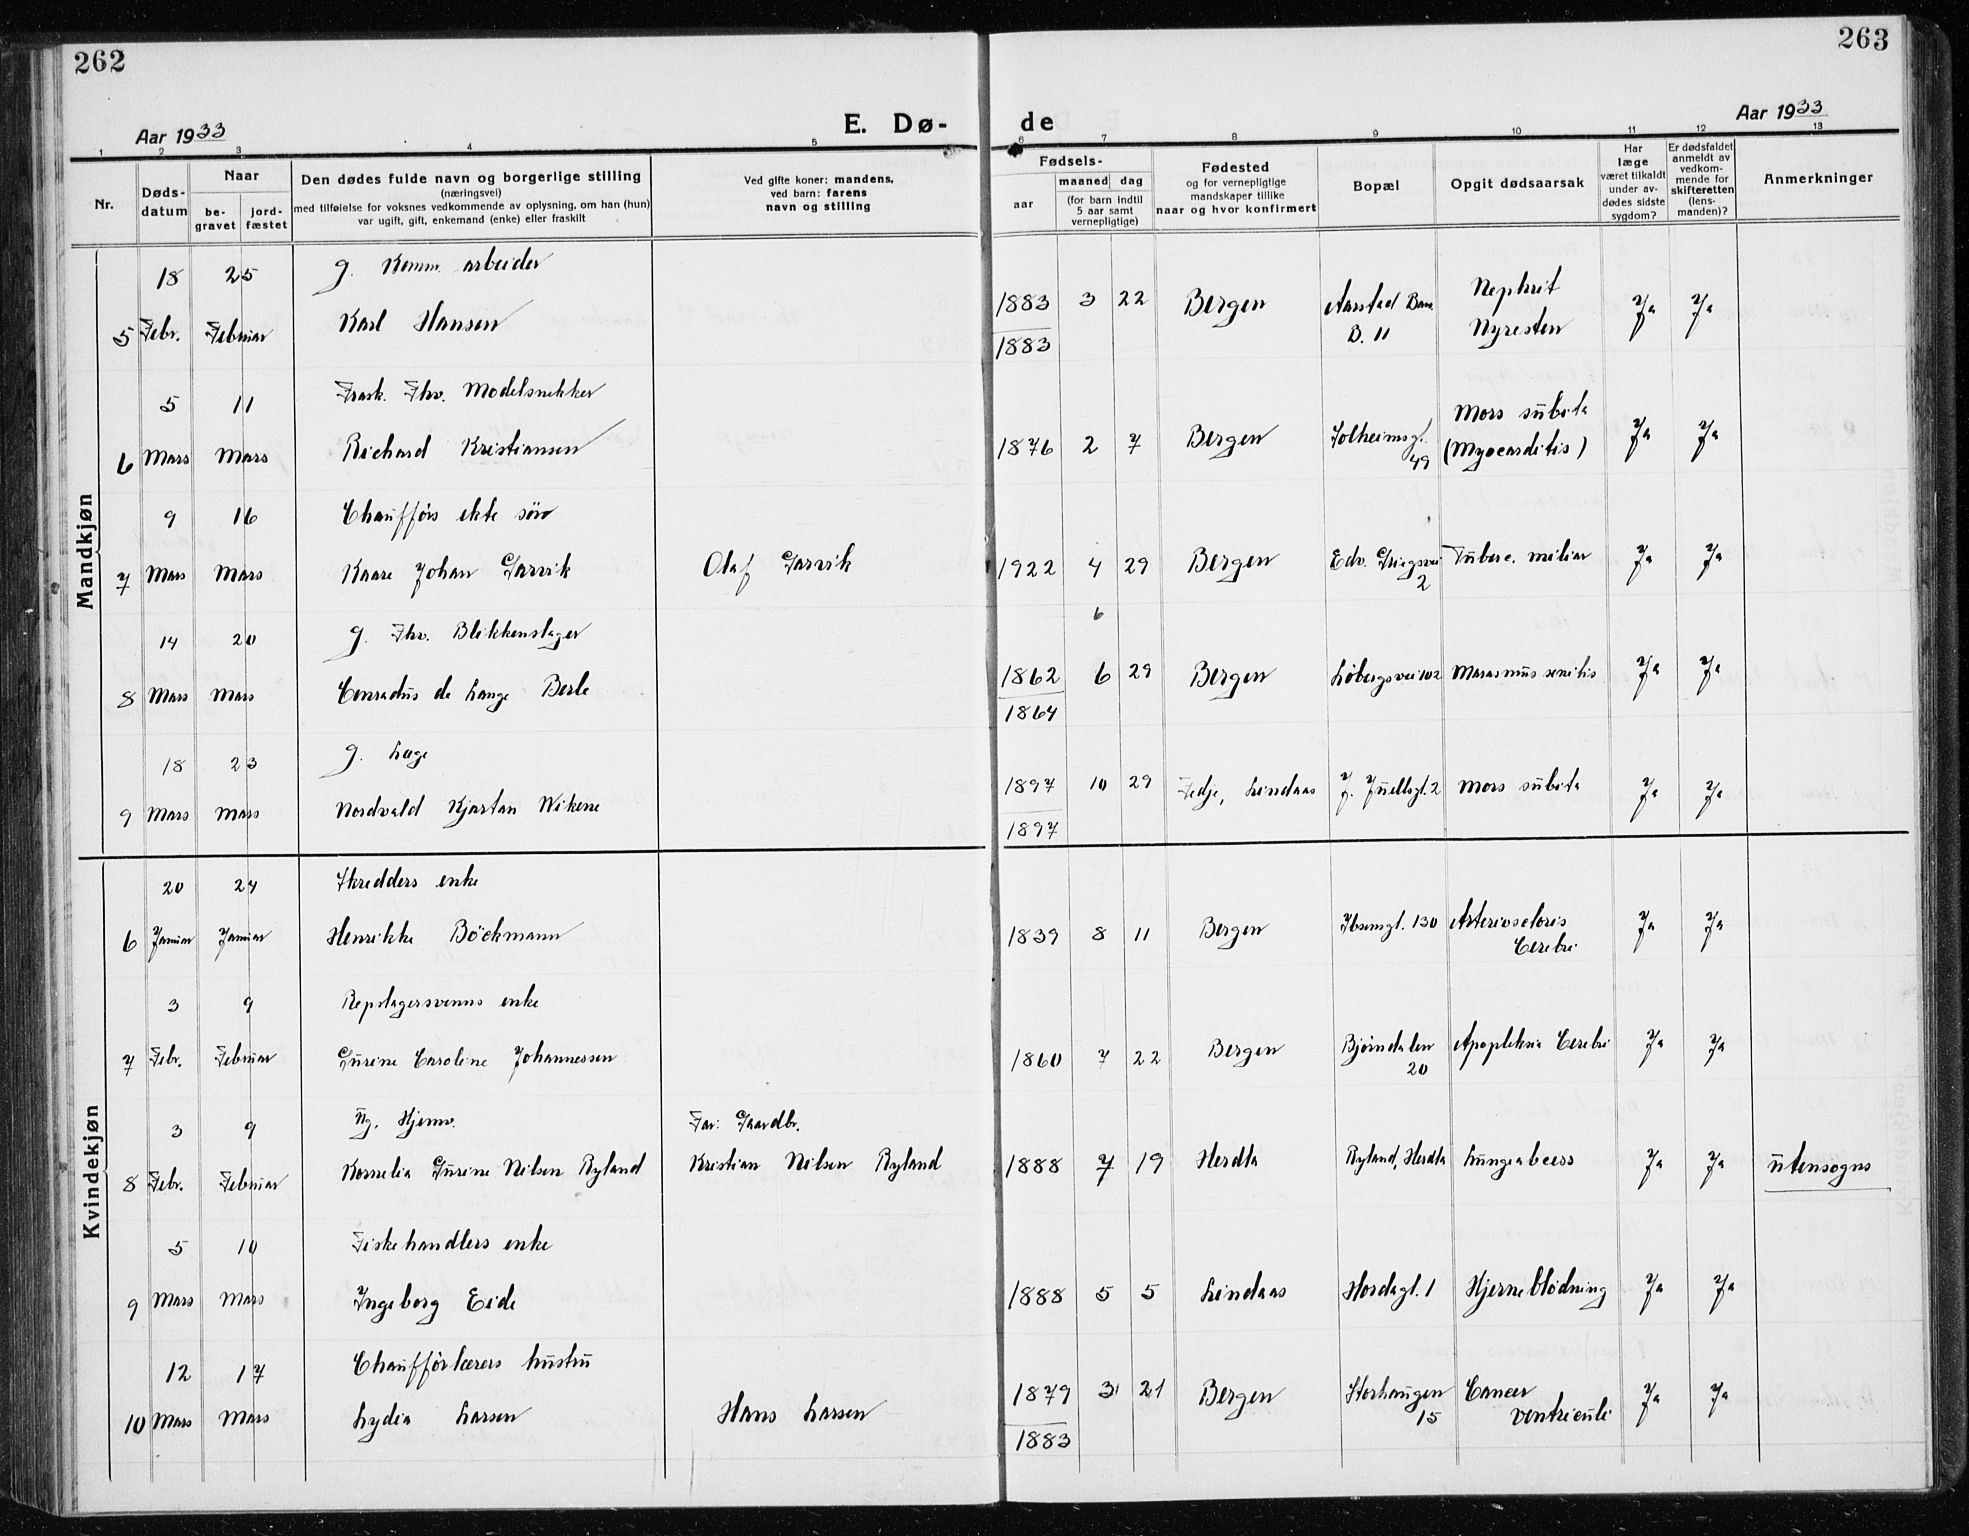 262
263
Aar 1933
E. Dø-
de
Aar 1933
1 2 3 4 5 6 7 8 9 10 11 12 13
Nr.
Døds-
datum
Naar
be-
gravet
jord-
fæstet
Den dødes fulde navn og borgerlige stilling
(næringsvei)
med tilføielse for voksnes vedkommende av oplysning, om han (hun)
var ugift, gift, enkemand (enke) eller fraskilt
Ved gifte koner: mandens,
ved barn: farens
navn og stilling
Fødsels-
aar
maaned dag
(for barn indtil
5 aar samt
vernepligtige)
Fødested
og for vernepligtige
mandskaper tillike
naar og hvor konfirmert
Bopæl
Opgit dødsaarsak
Har
læge
været tilkaldt
under av-
dødes sidste
sygdom?
Er dødsfaldet
anmeldt av
vedkom-
mende for
skifteretten
(lens-
manden)?
Anmerkninger
Mandkjøn
18 25 g. Komm. arbeider
5 Febr. Februar Karl Hansen 1883 3 22 Bergen Aarstad Bane Nephrit Ja Ja
1883 B. 11 Nyresten
5 11 Frask. Fhv. Modelsnekker
6 Mars Mars Richard Kristiansen 1876 2 7 Bergen Solheimsgt. Mors subita Ja Ja
49 (Myocarditis)
9 16 Chaufførs ekte søn
7 Mars Mars Kaare Johan Garvik Olaf Garvik 1922 4 29 Bergen Edv. Griegsvei Tuberc. miliar Ja Ja
2
6
14 20 g. Fhv. Blikkenslager
8 Mars Mars Conradus de Lange Berle 1862 6 29 Bergen Løbergsvei 102 Marasmus senilis Ja Ja
1864
18 23 g. Læge
9 Mars Mars Nordvald Kjartan Wikene 1897 10 29 Fedje, Lindaas J. Juellsgt. 2 Mors subita Ja Ja
1897
Kvindekjøn
20 24 Skredders enke
6 Januar Januar Henrikke Böckmann 1839 8 11 Bergen Ibsensgt. 130 Arterioscloris Ja Ja
Cerebri
3 9 Repslagersvenns enke
7 Febr. Februar Gurine Caroline Johannessen 1860 7 22 Bergen Bjørndalen Apopleksia Cerebri Ja Ja
20
3 9 Ug. Hjemv. Far: Gaardbr.
8 Febr. Februar Kornelia Gurine Nilsen Ryland Kristian Nilsen Ryland 1888 7 19 Herdla Ryland, Herdla Lungeabcess Ja Ja utensogns
5 10 Fiskehandlers enke
9 Mars Mars Ingeborg Eide 1888 5 5 Lindaas Hordagt. 1 Hjerneblödning Ja Ja
12 17 Chaufførlærers hustru
10 Mars Mars Lydia Larsen Hans Larsen 1879 3 21 Bergen Storhaugen Cancer Ja Ja
1883 15 ventriculi